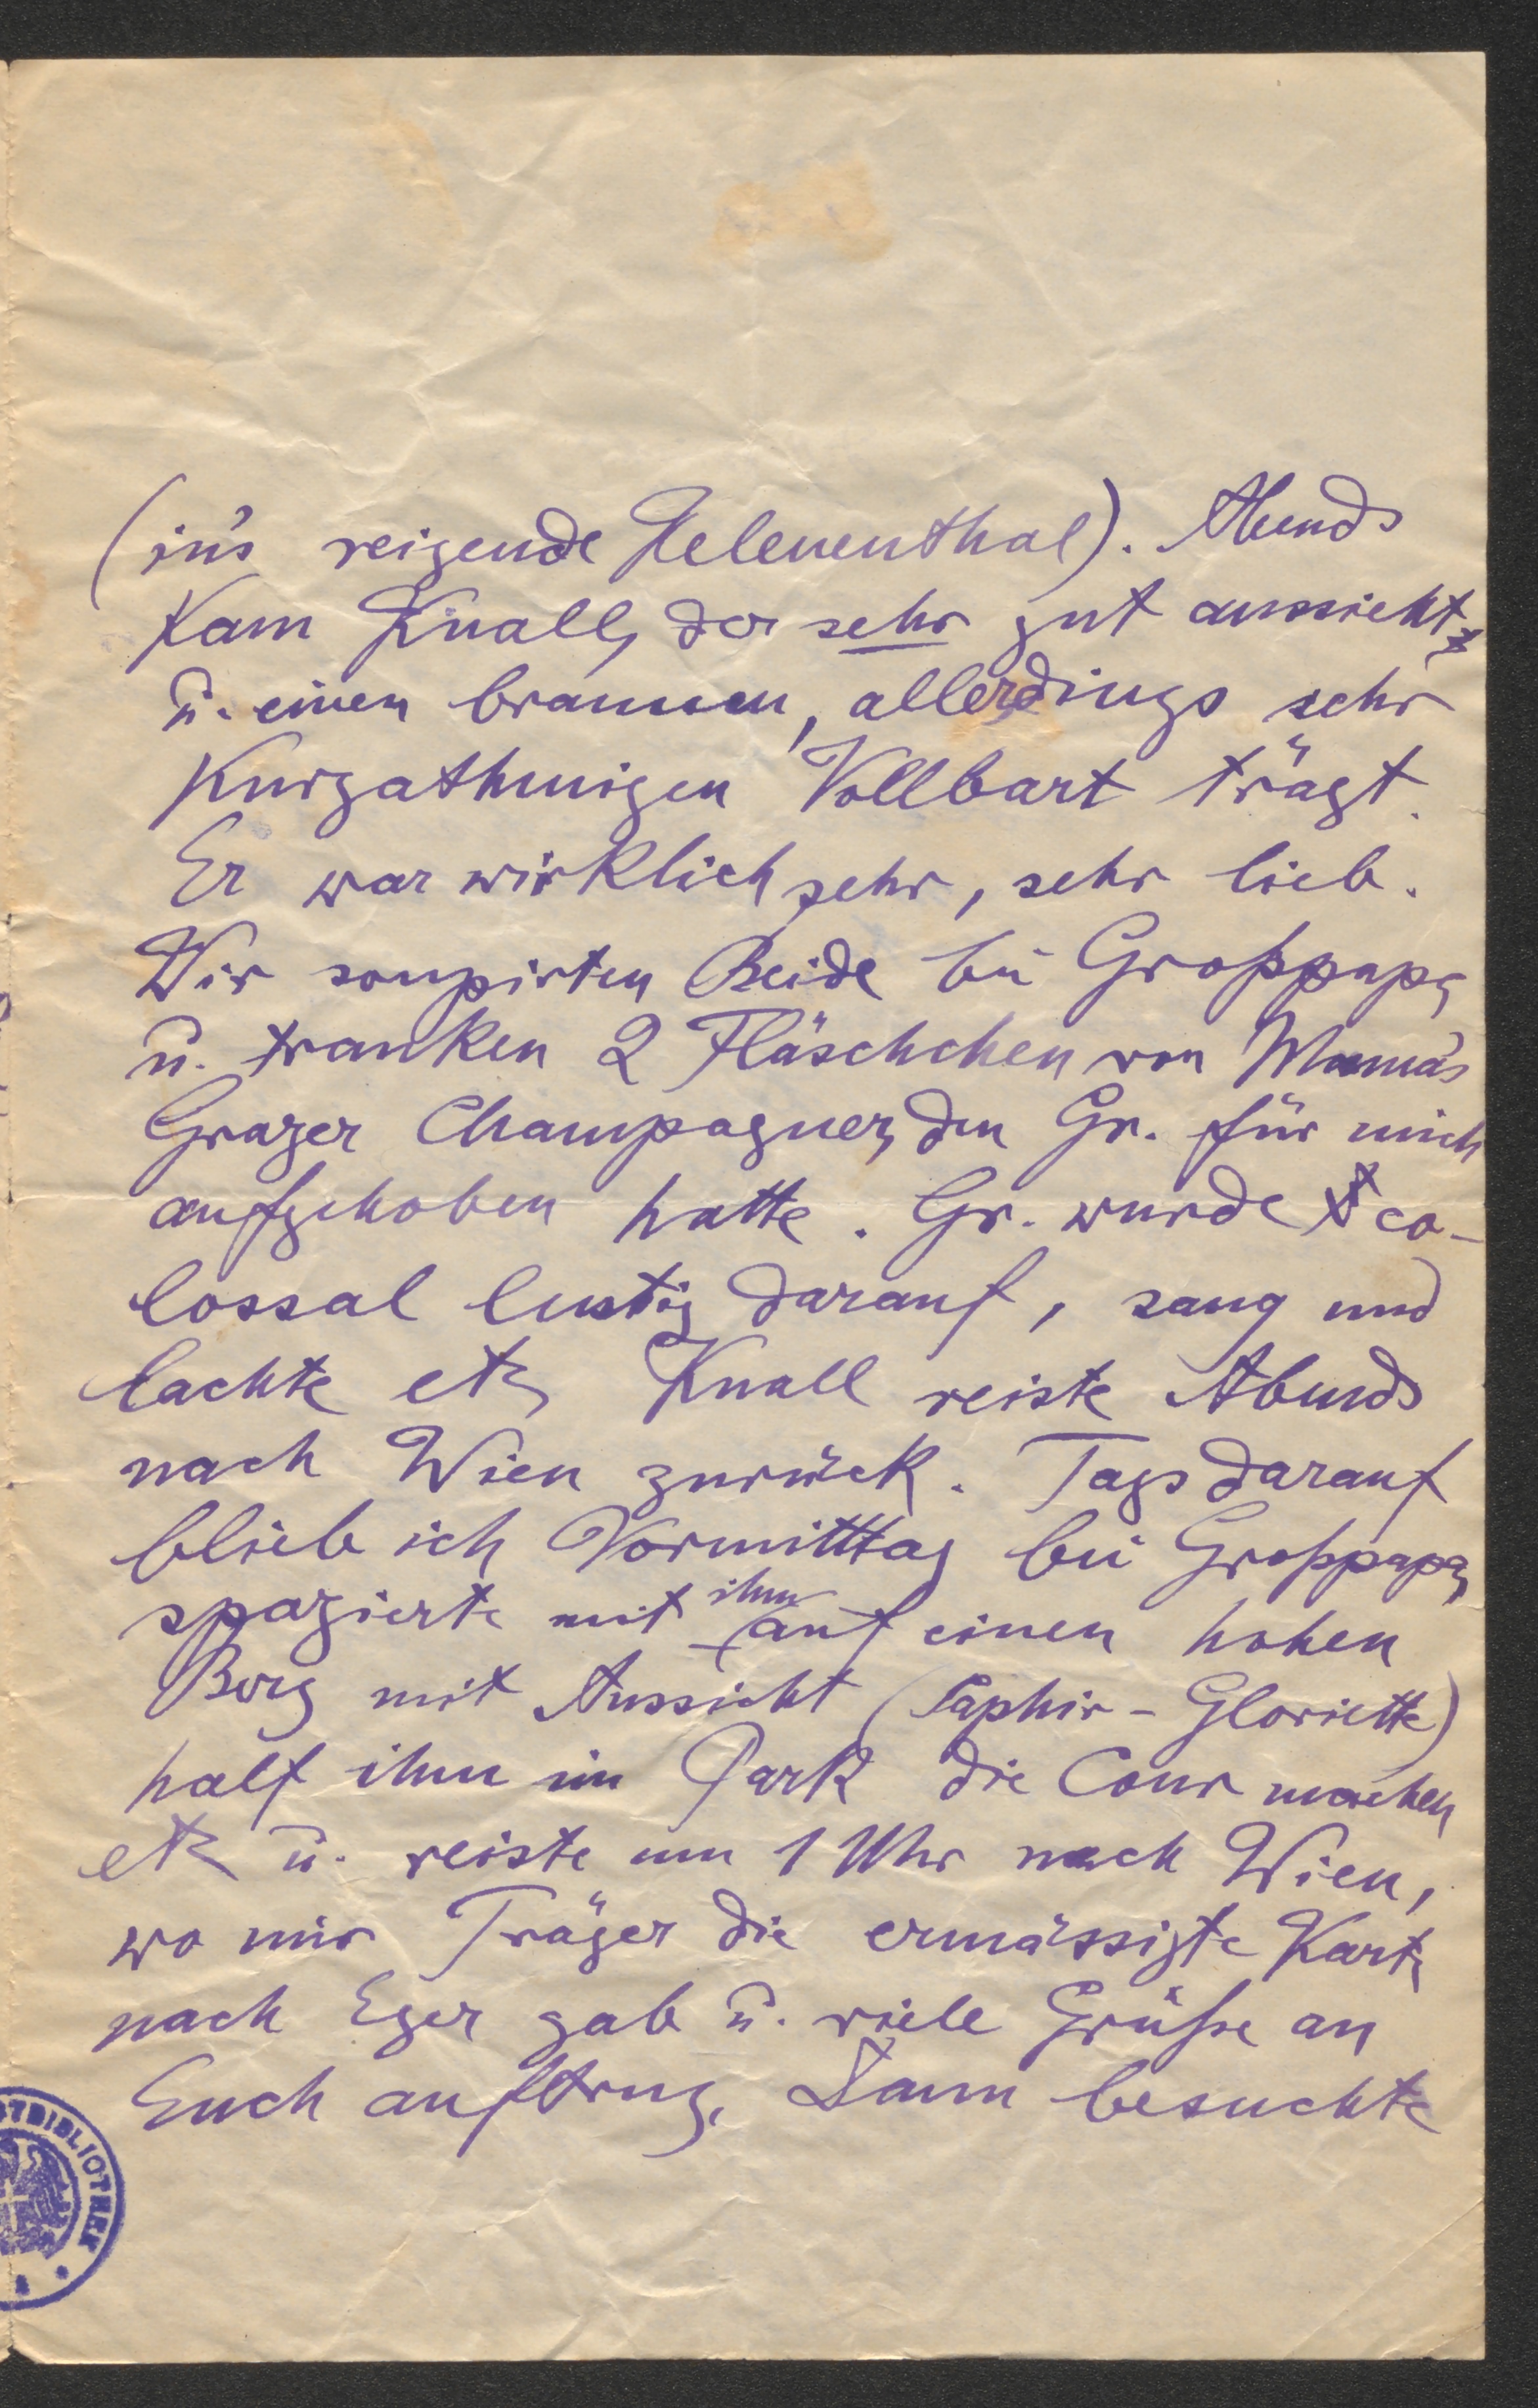 (in's reizende Helenenthal). Abends
kam Knall, der sehr gut aussieht
u. einen braunen, allerdings sehr
kurzathmigen Vollbart trägt.
Er war wirklich sehr, sehr lieb.
Wir soupirten Beide bei Großpapa
u. tranken 2 Fläschchen von Mama's
Grazer Champagner, den Gr. für mich
aufgehoben hatte. Gr. wurde co-
lossal lustig darauf, sang und
lachte etz. Knall reiste Abends
nach Wien zurück. Tags darauf
blieb ich Vormitttag bei Großpapa,
spazierte mit ihm auf einen hohen
Berg mit Aussicht (Saphir-Gloriette)
half ihm im Park die Cour machen
etz u. reiste um 1 Uhr nach Wien,
wo mir Träger die ermässigte Karte
nach Eger gab u. viele Grüße an
Euch auftrug. Dann besuchte
TBIBLIOTHEK